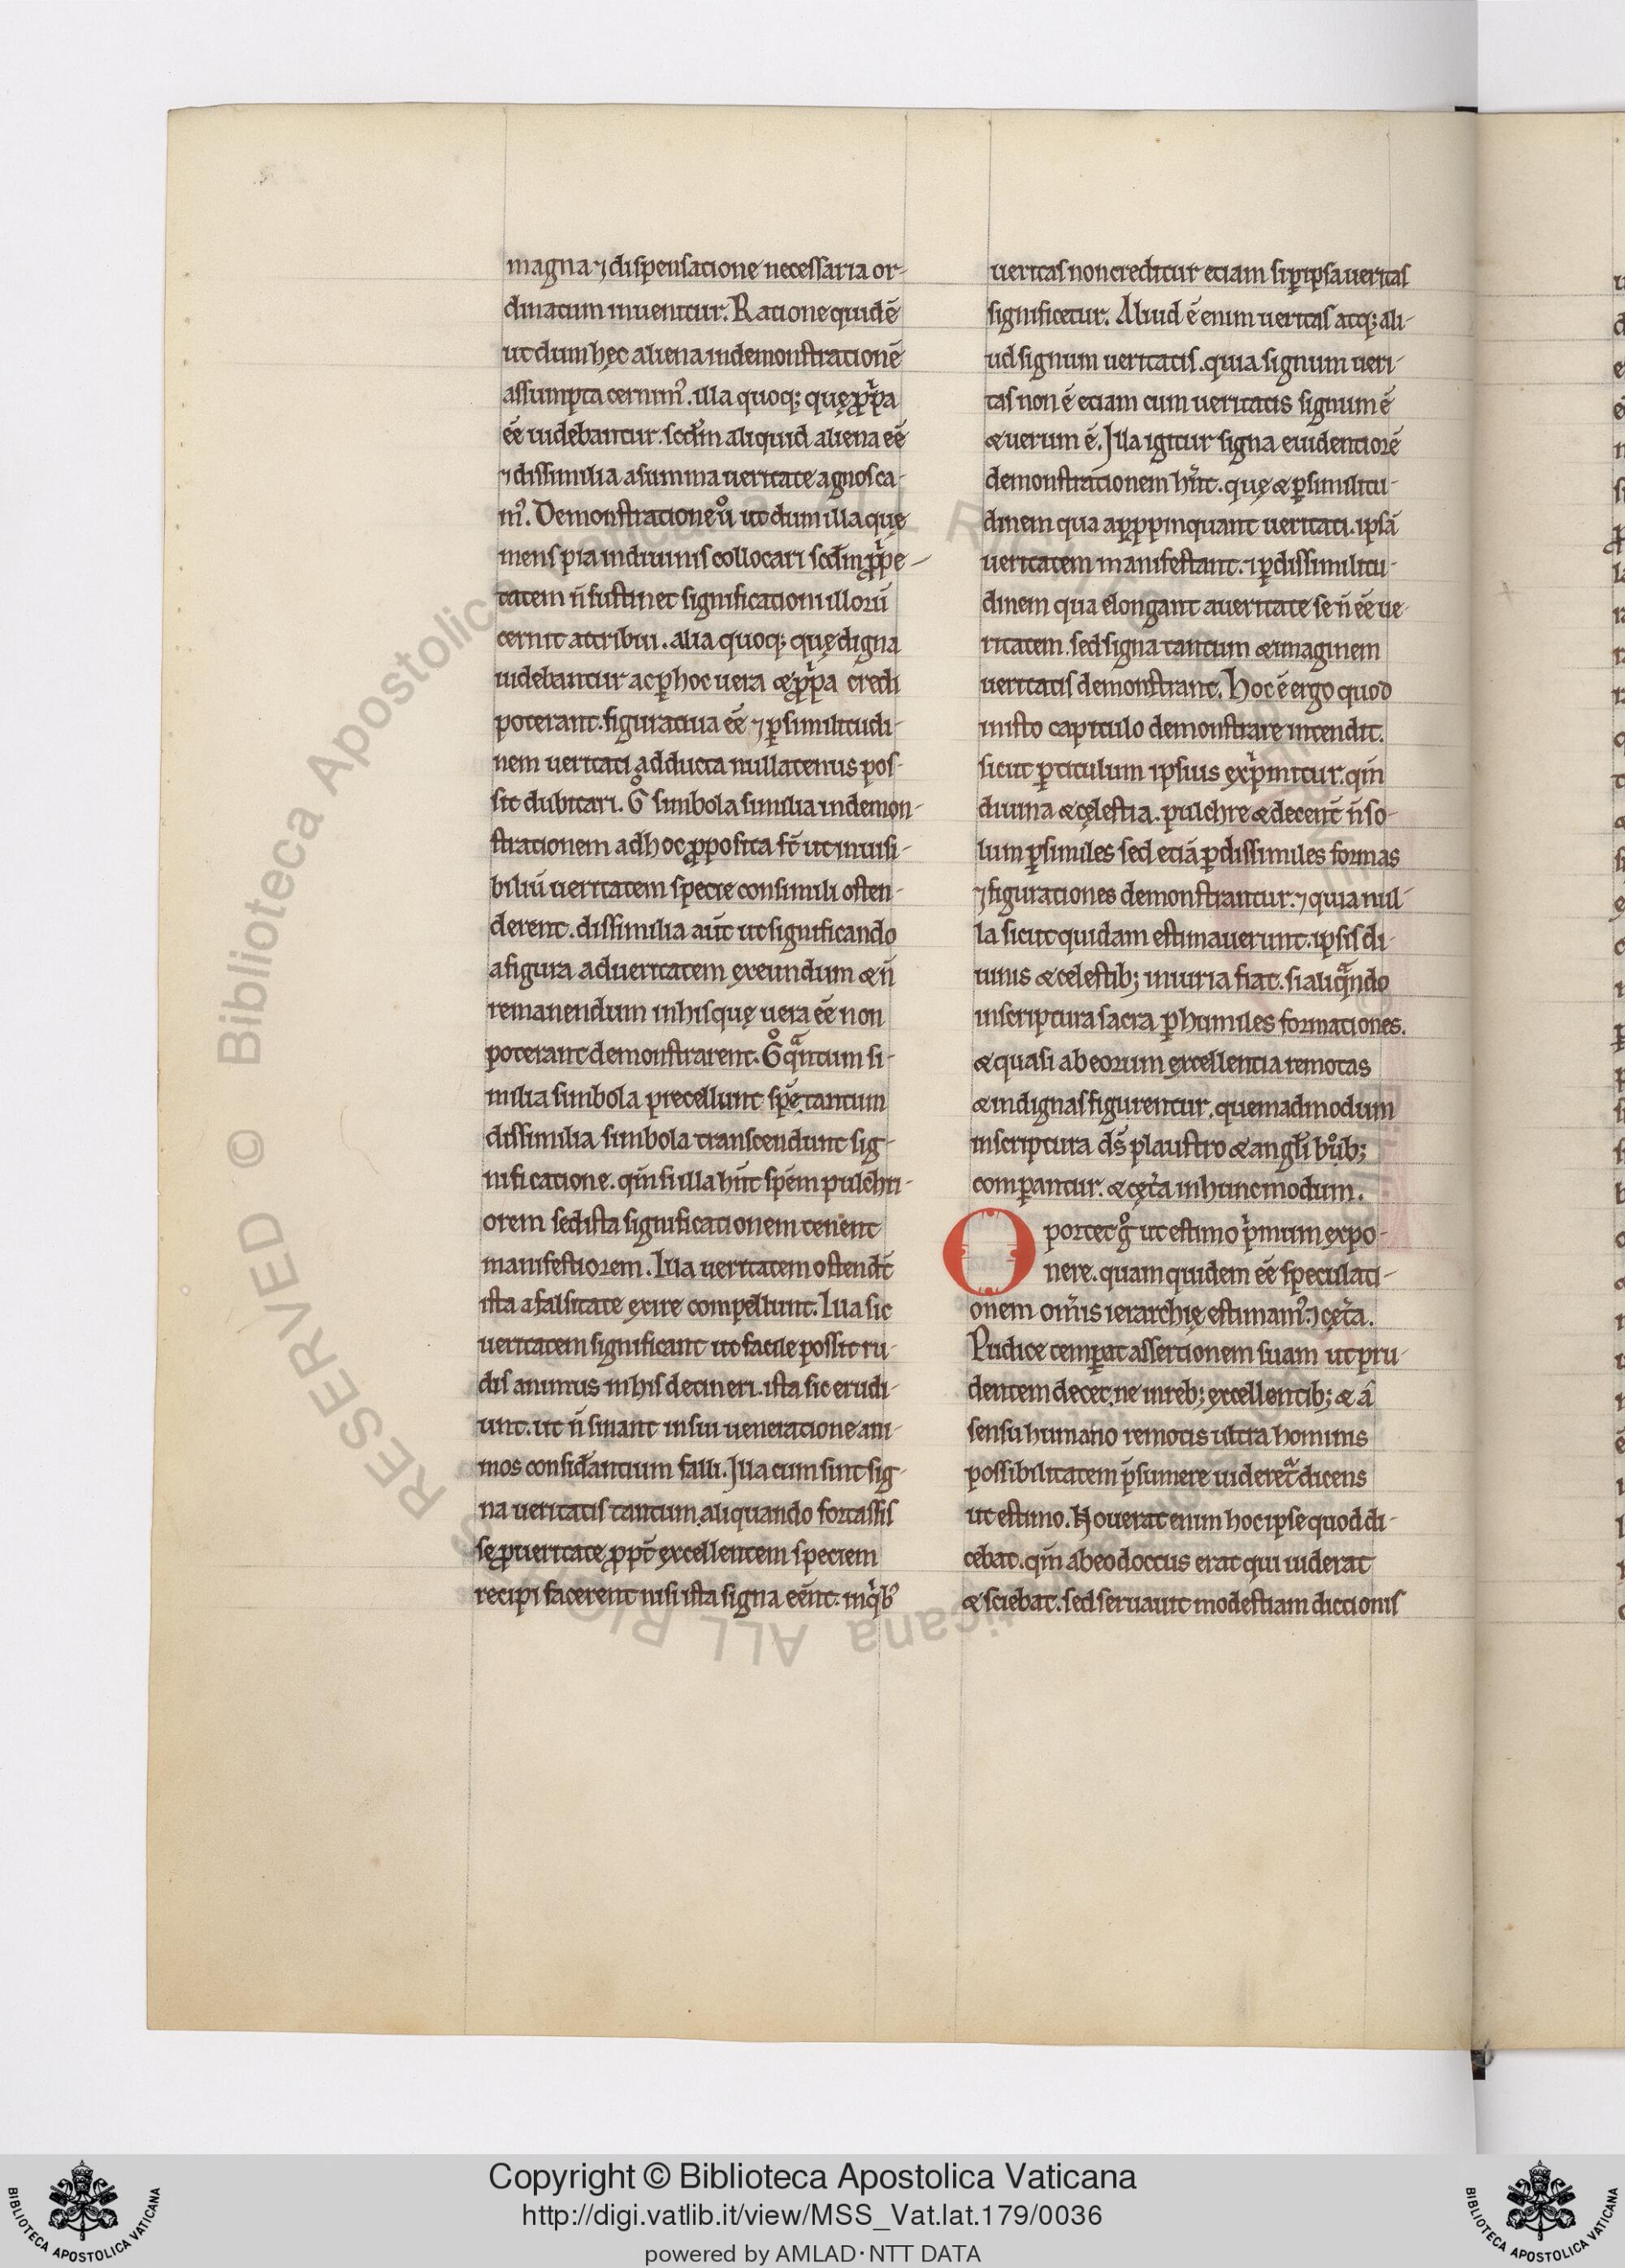 magna ⁊ dispensatione necessaria or-
dinatum inuenitur. Ratione quidē
ut dum hęc aliena in demonstrationē
assumpta cernim᷒. illa quoq; quę ꝓp̍a
ēē uidebantur. scd̄m aliquid aliena eē
⁊ dissimilia a summa ueritate agnosca-
m᷒. Demonstratione uͦ ut dum illa quę
mens pia in diuinis collocari scd̄m ꝓp̍e-
tatem n̄ sustinet significationi illorū
cernit attribui. alia quoq; quę digna
uidebantur ac ꝑ hoc uera & ꝓp̍a credi
poterant. figuratiua eē ⁊ ꝑ similitudi-
nem ueritati adducta nullatenus pos-
sit dubitari. Gͦ simbola similia in demon-
strationem ad hoc ꝓposita st̄ ut inuisi-
biliū ueritatem specie consimili osten-
derent. dissimilia aūt ut significando
a figura ad ueritatem exeundum & n̄
remanendum in his quę uera eē non
poterant demonstrarent. Gͦ qͣntum si-
milia simbola precellunt spē. tantum
dissimilia simbola transcendunt sig-
nificatione. qm̄ si illa hn̄t spēm pulchri-
orem sed ista significationem tenent
manifestiorem. Illa ueritatem ostendt̄
ista a falsitate exire compellunt. Illa sic
ueritatem significant ut facile possit ru-
dis animus in his detineri. ista sic erudi-
unt. ut n̄ sinant in sui ueneratione ani-
mos considantium falli. Illa cum sint sig-
na ueritatis tantum. aliquando fortassis
se ꝓ ueritate ꝓpt̄ excellentem speciem
recipi facerent nisi ista signa eēnt. in q̍b᷒
ueritas non creditur etiam si ꝑ ipsa ueritas
significetur. Aliud ē enim ueritas atq; ali-
ud signum ueritatis. quia signum ueri-
tas non ē etiam cum ueritatis signum ē
& uerum ē. Illa igitur signa euidentiorē
demonstrationem hn̄t. quę & ꝑ similitu-
dinem qua apꝓpinquant ueritati. ipsā
ueritatem manifestant. ⁊ ꝑ dissimilitu-
dinem qua elongant a ueritate se n̄ eē ue-
ritatem. sed signa tantum & imaginem
ueritatis demonstrant. Hoc ē ergo quod
in isto capitulo demonstrare intendit.
sicut ꝑ titulum ipsius exp̍mitur. qm̄
diuina & cęlestia. pulchre & decent̄ n̄ so-
lum ꝑ similes sed etiā ꝑ dissimiles formas
⁊ figurationes demonstrantur. ⁊ quia nul-
la sicut quidam estimauerunt. ipsis di-
uinis & celestib; iniuria fiat. si aliqͣndo
in scriptura sacra ꝑ humiles formationes.
& quasi ab eorum excellentia remotas
& indignas figurentur. quemadmodum
in scriptura ds̄ plaustro & angl̄i
comparantur. & cęt̄a in hunc modum.
Oportet gͦ ut estimo p̍mum expo-
nere. quam quidem eē speculati-
onem om̄is ierarchię estimam᷒. ⁊ cęt̄a.
Pudice temꝑat assertionem suam ut pru-
dentem decet. ne in reb; excellentib; & a
sensu humano remotis ultra hominis
possibilitatem p̄sumere uideret᷑. dicens
ut estimo. Nouerat enim hoc ipse quod di-
cebat. qm̄ ab eo doctus erat qui uiderat
& sciebat. sed seruauit modestiam dictionis
Copyright © Biblioteca Apostolica Vaticana
http://digi.vatlib.it/view/MSS_Vat.lat.179/0036
powered by AMLAD·NTT DATA
BIBLIOTECA APOSTOLICA VATICANA
BIBLIOTECA APOSTOLICA VATICANA